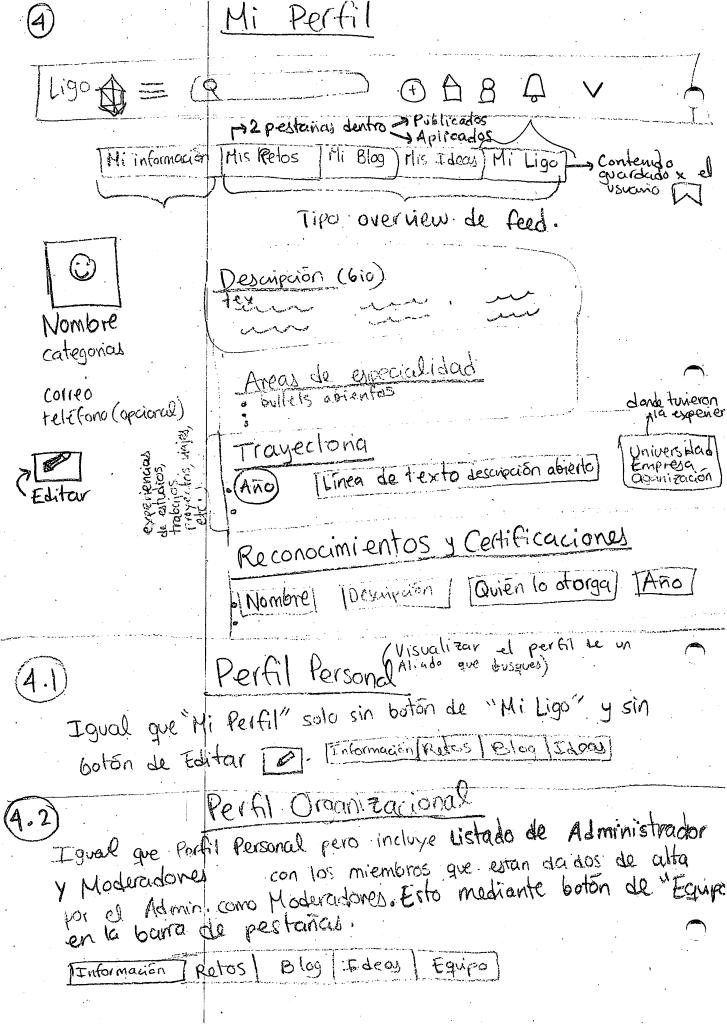 4
Mi Perfil
Ligo
2 pestañas dentro
Publicados
Aplicados
Mi información
Mis Retos
Mi Blog
Mis Ideas
Mi Ligo
Contenido
guardado x el
usuario
Tipo overview de feed.
Nombre
categorias
correo
teléfono (opcional)
Editar
Descripción (bio)
tex
Areas de especialidad
bullets abiertos
Trayectoria
Año
Línea de texto descripción abierto
donde tuvieron
la experien
Universidad
Empresa
Organización
experiencias
de estudios,
trabajos
proyectos, viajes,
etc.
Reconocimientos y Certificaciones
Nombre
Descripción
Quién lo otorga
Año
4.1
Perfil Personal
(Visualizar el perfil de un
Aliado que busques)
Igual que "Mi Perfil" solo sin botón de "Mi Ligo" y sin
botón de Editar .
Información
Retos
Blog
Ideas
4.2
Perfil Organizacional
Igual que Perfil Personal pero incluye Listado de Administrador
y Moderadores con los miembros que estan dados de alta
por el Admin. como Moderadores. Esto mediante botón de "Equipo
en la barra de pestañas.
Información
Retos
Blog
Ideas
Equipo